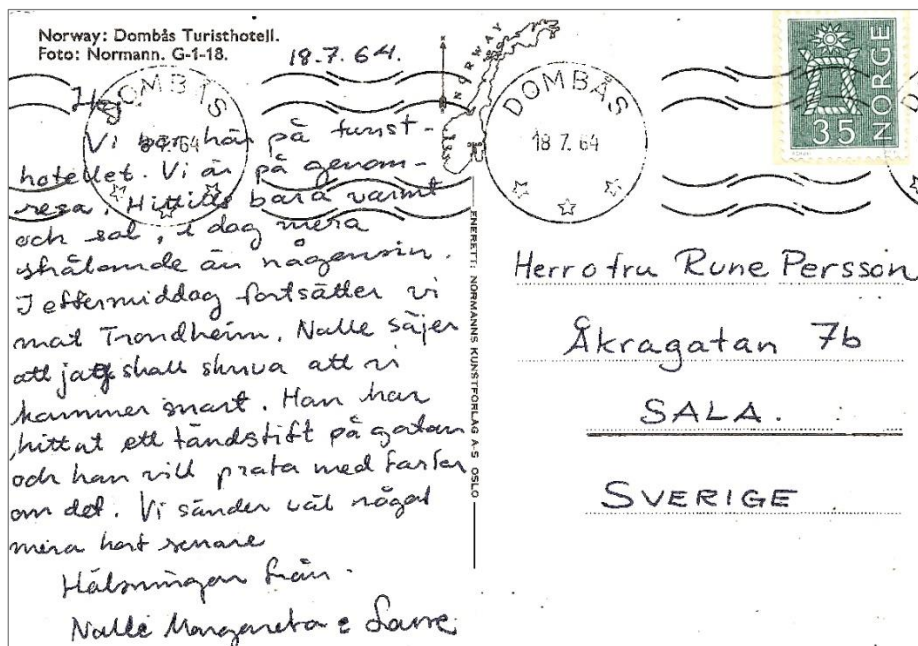 Norway: Dombås Turisthotell.
Foto: Normann. G-1-18.
18.7.64.
Hej
Vi bor här på turist-
hotellet. Vi är på genom-
resa. Hittills bara varmt
och sol, i dag mera
strålande än någonsin.
I eftermiddag fortsätter vi
mot Trondheim. Nalle säjer
att jag skall skriva att vi
kommer snart. Han har
hittat ett tändstift på gatan
och han vill prata med farfar
om det. Vi sänder väl något
mera kort senare
Hälsningar från.
Nalle Margareta o Lasse
NORWAY
ENERETT: NORMANNS KUNSTFORLAG A-S OSLO
DOMBÅS
18 7. 64
DOMBÅS
18 7. 64
NORGE
35
Herr o fru Rune Persson
Åkragatan 7b
SALA.
SVERIGE